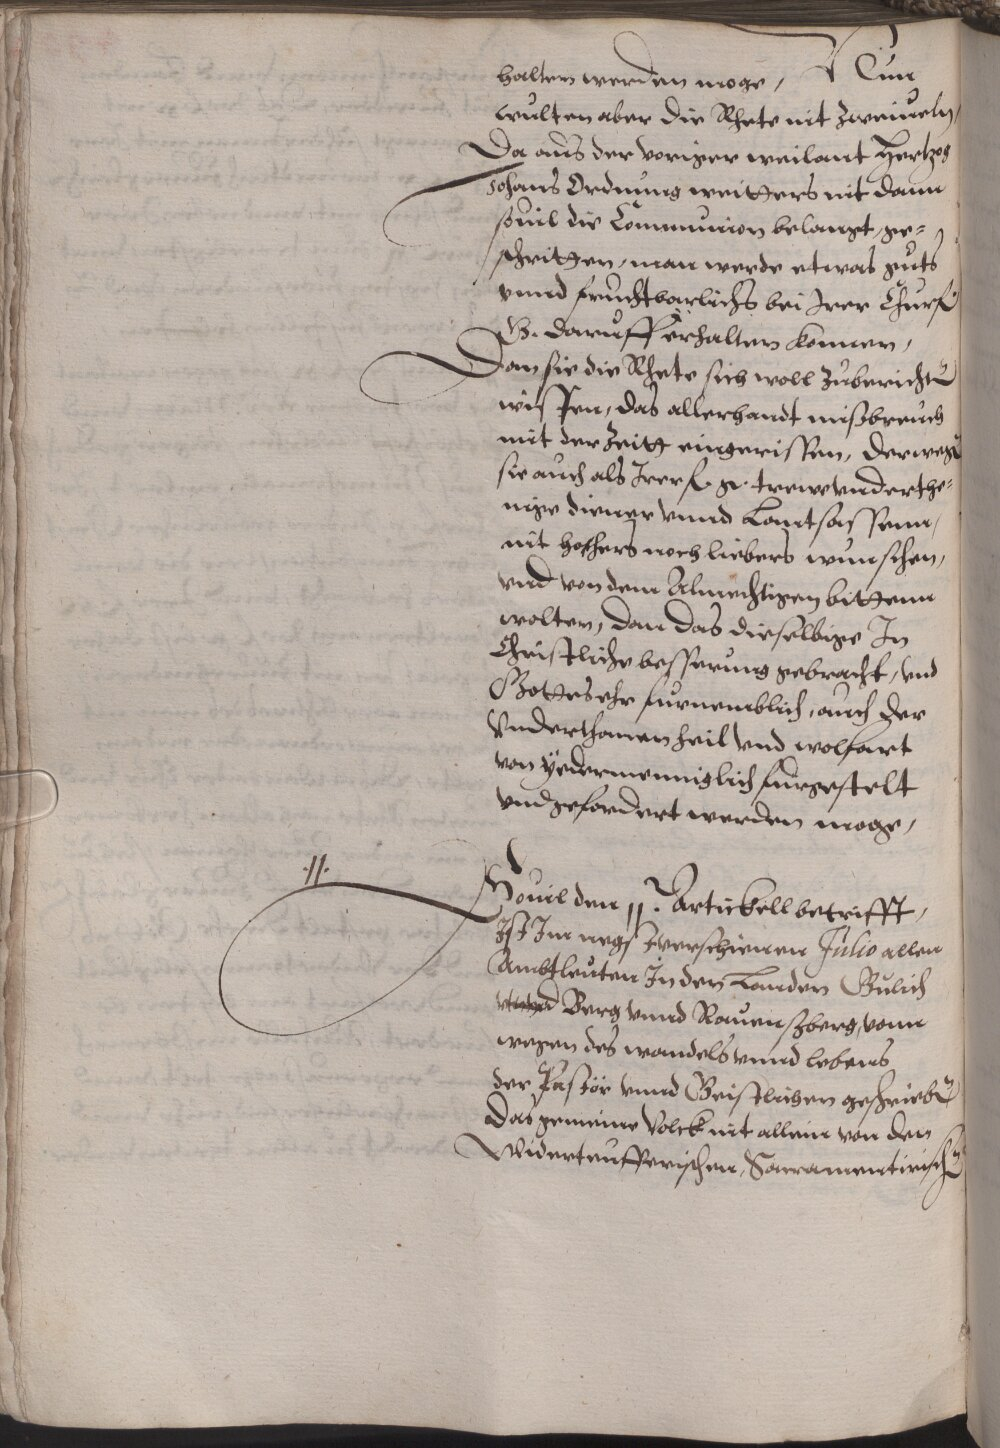 halten werden moge, Nun
wulten aber die Rhete nit zweiueln,
Da aus der voriger weilant Hertzog
Johans Ordnung weitters nit dann
souil die Communion belangt, ge=
schritten, man werde etwas guts
vnnd fruchtbarlichs bei Irer Churf.
G. daruff erhalten konnen,
Dan sie die Rhete sich woll zuberichten
wissen, das allerhandt mißbreuch
mit der Zeitt eingerissen, Derwegen
sie auch als Irer f. g. trewe vnderthe=
nige diener vnnd Lantsassenn,
nit hohers noch liebers wunschen,
vnd von dem Almechtigen bittenn
wolten, dan das dieselbige In
Christliche besserung gebracht, vnd
Gottes ehr furnemblich, auch der
Vnderthanen heil vnd wolfart
von yedermenniglich furgestelt
vnd gefordert werden moge,
.11.
Souil den 11. Artickell betrifft,
Ist Im negst verschienen Julio allen
Ambtleuten In den Landen Gulich
vnnd Berg vnnd Rauenßberg, vonn
wegen des wandels vnnd lebens
der Pastör vnnd Geistlichen geschrieben
Das gemeine Volck nit allein von den
Widerteufferischen, Sacramentirischen